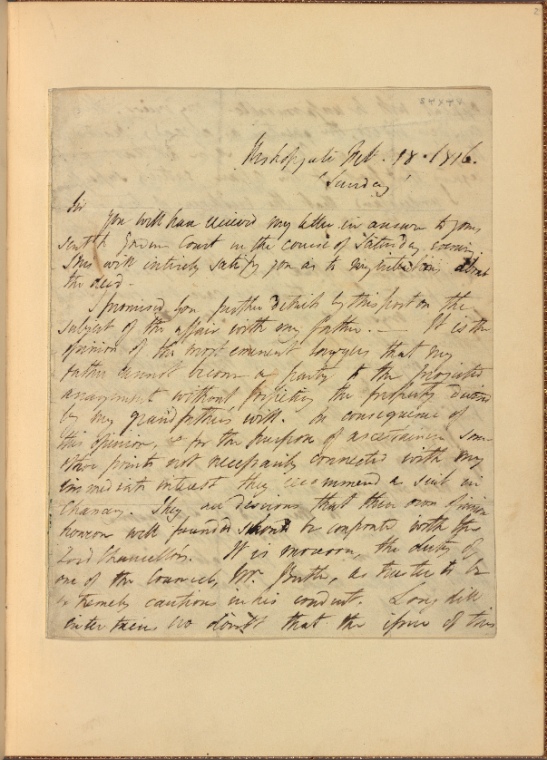 Bishopgate Feb. 18. 1816.
Sunday
Sir
You will have received my letter in answer to yours
sent to Garden Court in the course of Saturday evening
this will entirely satisfy you as to my intentions about
the deed.
I promised you further details by this post on the
subject of the affair with my father. — It is the
opinion of the most eminent lawyers that my
father cannot become a party to the projected
arrangement without forfeiting the property devised
by my grandfather's will. In consequence of
this opinion, & for the purpose of ascertaining some
other points not necessarily connected with my
immediate interest they recommend a suit in
Chancery. They are desirous that their own opinion
however well founded should be confronted with the
Lord Chancellor's. It is moreover, the duty of
one of the Council, Mr. Butler, as trustee to be
extremely cautious in his conduct. Longdill
entertains no doubt that the issue of this